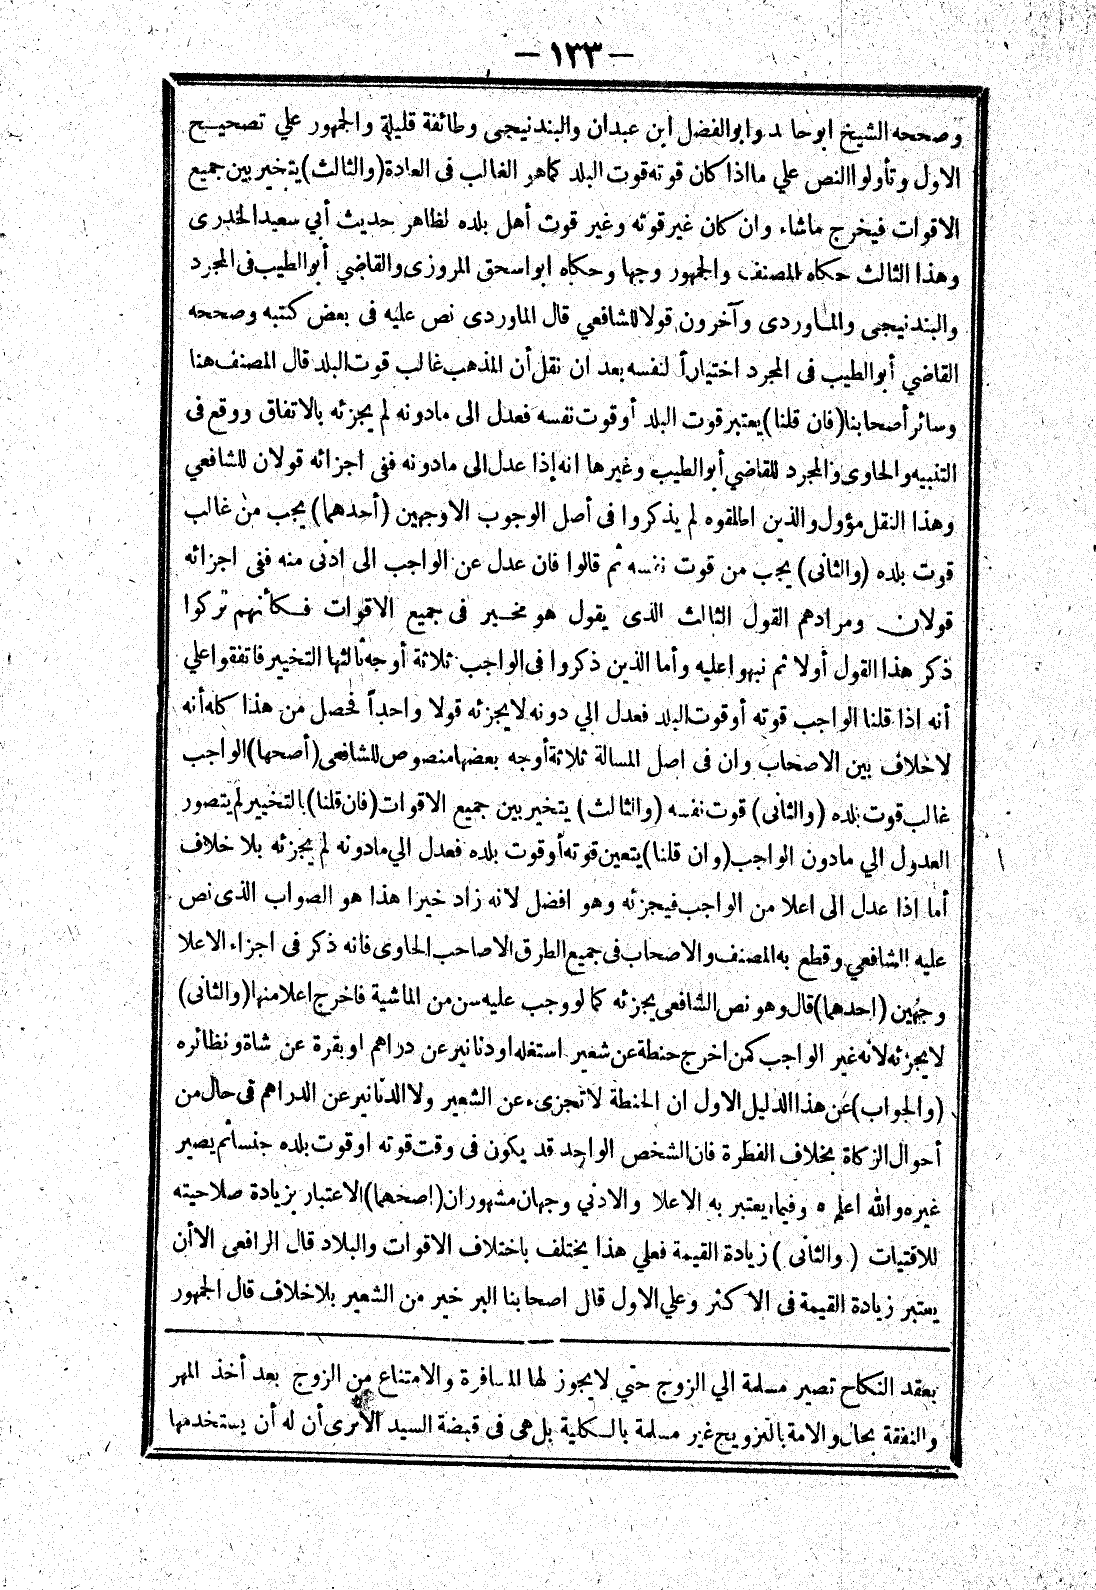 — ١٣٣ —
وصححه الشيخ ابو حامد وابو الفضل ابن عبدان والبندنيجى وطائفة قليلة والجمهور علي تصحيح
الاول وتأولوا النص علي ما اذا كان قوته قوت البلد كما هو الغالب فى العادة (والثالث) يتخير بين جميع
الاقوات فيخرج ماشاء وان كان غير قوته وغير قوت أهل بلده لظاهر حديث أبي سعيد الخدرى
وهذا الثالث حكاه المصنف والجمهور وجها وحكاه ابواسحق المروزى والقاضي أبوالطيب فى المجرد
والبندنيجى والماوردى وآخرون قولا للشافعي قال الماوردى نص عليه فى بعض كتبه وصححه
القاضي أبوالطيب فى المجرد اختياراً لنفسه بعد ان نقل أن المذهب غالب قوت البلد قال المصنف هنا
وسائر أصحابنا (فان قلنا) يعتبر قوت البلد أوقوت نفسه فعدل الى مادونه لم يجزئه بالاتفاق ووقع فى
التنبيه والحاوى والمجرد للقاضي أبوالطيب وغيرها انه إذا عدل الى مادونه ففى اجزائه قولان للشافعي
وهذا النقل مؤول والذين اطلقوه لم يذكروا فى أصل الوجوب الاوجهين (أحدهما) يجب من غالب
قوت بلده (والثانى) يجب من قوت نفسه ثم قالوا فان عدل عن الواجب الى ادنى منه ففى اجزائه
قولان ومرادهم القول الثالث الذى يقول هو مخير فى جميع الاقوات فكأنهم تركوا
ذكر هذا القول أولا ثم نبهوا عليه وأما الذين ذكروا فى الواجب ثلاثة أوجه ثالثها التخيير فاتفقوا علي
أنه اذا قلنا الواجب قوته أوقوت البلد فعدل الي دونه لايجزئه قولا واحداً فحصل من هذا كله أنه
لاخلاف بين الاصحاب وان فى اصل المسالة ثلاثة أوجه بعضها منصوص للشافعى (أصحها) الواجب
غالب قوت بلده (والثانى) قوت نفسه (والثالث) يتخير بين جميع الاقوات (فان قلنا) بالتخيير لم يتصور
العدول الي مادون الواجب (وان قلنا) يتعين قوته أوقوت بلده فعدل الي مادونه لم يجزئه بلا خلاف
أما اذا عدل الى اعلا من الواجب فيجزئه وهو افضل لانه زاد خيرا هذا هو الصواب الذى نص
عليه الشافعي وقطع به المصنف والاصحاب فى جميع الطرق الاصاحب الحاوى فانه ذكر فى اجزاء الاعلا
وجهين (احدهما) قال وهو نص الشافعى يجزئه كما لو وجب عليه سن من الماشية فاخرج اعلا منها (والثانى)
لايجزئه لانه غير الواجب كمن اخرج حنطة عن شعير استغله اودنانير عن دراهم اوبقرة عن شاة ونظائره
(والجواب) عن هذا الدليل الاول ان الحنطة لاتجزىء عن الشعير ولا الدنانير عن الدراهم فى حال من
أحوال الزكاة بخلاف الفطرة فان الشخص الواحد قد يكون فى وقت قوته اوقوت بلده جنسا ثم يصير
غيره والله اعلم ه وفيما يعتبر به الاعلا والادني وجهان مشهوران (اصحهما) الاعتبار بزيادة صلاحيته
للاقتيات (والثانى) زيادة القيمة فعلي هذا يختلف باختلاف الاقوات والبلاد قال الرافعى الاأن
يعتبر زيادة القيمة فى الاكثر وعلي الاول قال اصحابنا البر خير من الشعير بلاخلاف قال الجمهور
بعقد النكاح تصير مسلمة الي الزوج حتي لايجوز لها المسافرة والامتناع من الزوج بعد أخذ المهر
والنفقة بحال والامة بالتزويج غير مسلمة بالكلية بل هى فى قبضة السيد الاترى أن له أن يستخدمها